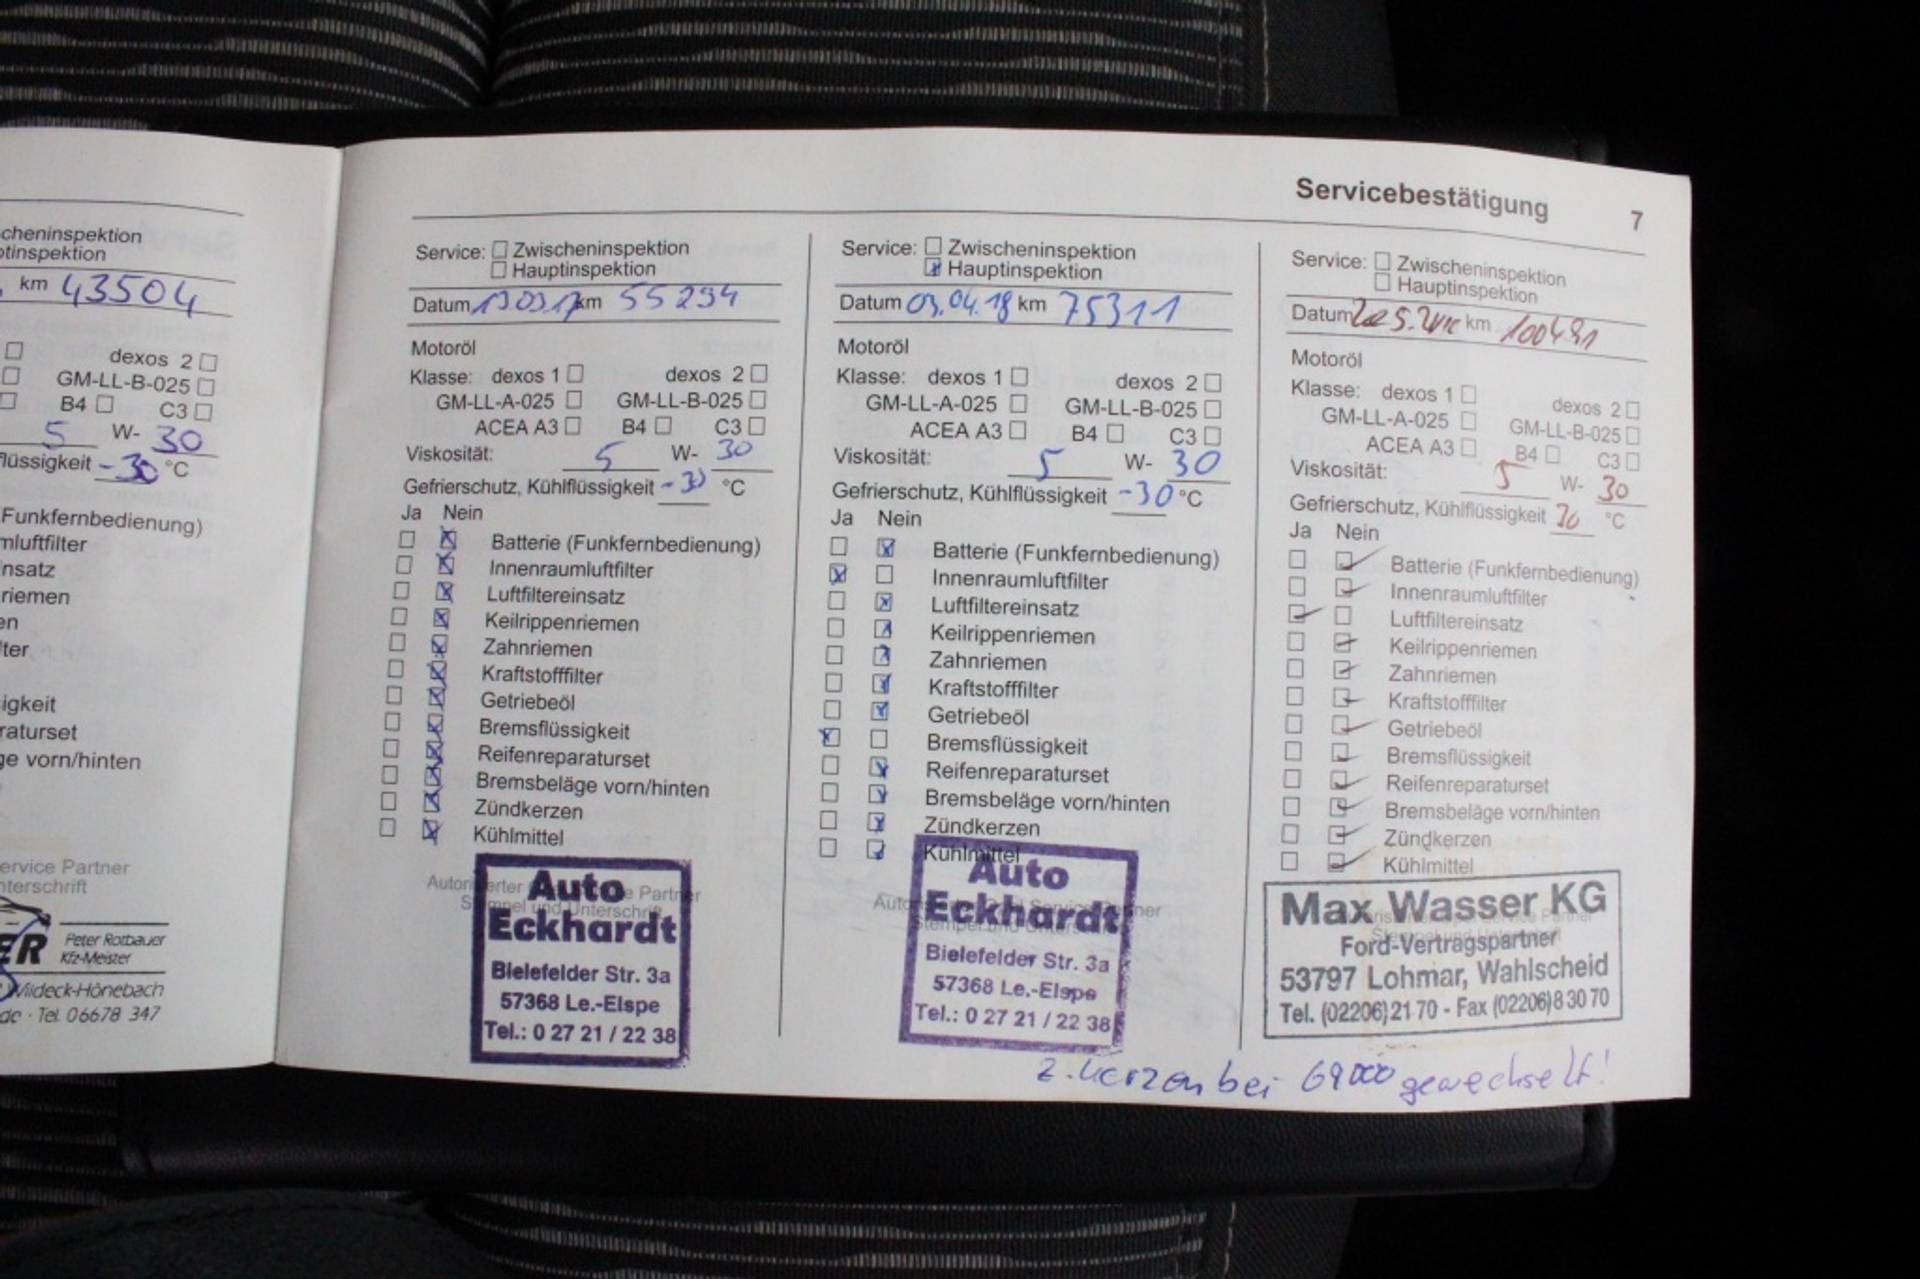 Servicebestätigung 7
cheninspektion
ptinspektion
km 43504
dexos 2
GM-LL-B-025
B4 C3
5 W- 30
flüssigkeit -30 °C
Funkfernbedienung)
mluftfilter
nsatz
riemen
en
ter
igkeit
raturset
ge vorn/hinten
ervice Partner
nterschrift
ER Peter Rotbauer
Kfz-Meister
Wildeck-Hönebach
de · Tel. 06678 347
Service: Zwischeninspektion
Hauptinspektion
Datum 130317 km 55294
Motoröl
Klasse: dexos 1 dexos 2
GM-LL-A-025 GM-LL-B-025
ACEA A3 B4 C3
Viskosität: 5 W- 30
Gefrierschutz, Kühlflüssigkeit -30 °C
Ja Nein
Batterie (Funkfernbedienung)
Innenraumluftfilter
Luftfiltereinsatz
Keilrippenriemen
Zahnriemen
Kraftstofffilter
Getriebeöl
Bremsflüssigkeit
Reifenreparaturset
Bremsbeläge vorn/hinten
Zündkerzen
Kühlmittel
Auto
Eckhardt
Bielefelder Str. 3a
57368 Le.-Elspe
Tel.: 0 27 21 / 22 38
Service: Zwischeninspektion
Hauptinspektion
Datum 03.04.18 km 75311
Motoröl
Klasse: dexos 1 dexos 2
GM-LL-A-025 GM-LL-B-025
ACEA A3 B4 C3
Viskosität: 5 W- 30
Gefrierschutz, Kühlflüssigkeit -30 °C
Ja Nein
Batterie (Funkfernbedienung)
Innenraumluftfilter
Luftfiltereinsatz
Keilrippenriemen
Zahnriemen
Kraftstofffilter
Getriebeöl
Bremsflüssigkeit
Reifenreparaturset
Bremsbeläge vorn/hinten
Zündkerzen
Kühlmittel
Auto
Eckhardt
Bielefelder Str. 3a
57368 Le.-Elspe
Tel.: 0 27 21 / 22 38
Service: Zwischeninspektion
Hauptinspektion
Datum km 100491
Motoröl
Klasse: dexos 1 dexos 2
GM-LL-A-025 GM-LL-B-025
ACEA A3 B4 C3
Viskosität: 5 W- 30
Gefrierschutz, Kühlflüssigkeit 30 °C
Ja Nein
Batterie (Funkfernbedienung)
Innenraumluftfilter
Luftfiltereinsatz
Keilrippenriemen
Zahnriemen
Kraftstofffilter
Getriebeöl
Bremsflüssigkeit
Reifenreparaturset
Bremsbeläge vorn/hinten
Zündkerzen
Kühlmittel
Max Wasser KG
Ford-Vertragspartner
53797 Lohmar, Wahlscheid
Tel. (02206) 21 70 - Fax (02206) 8 30 70
Z.kerzen bei 69000 gewechselt!